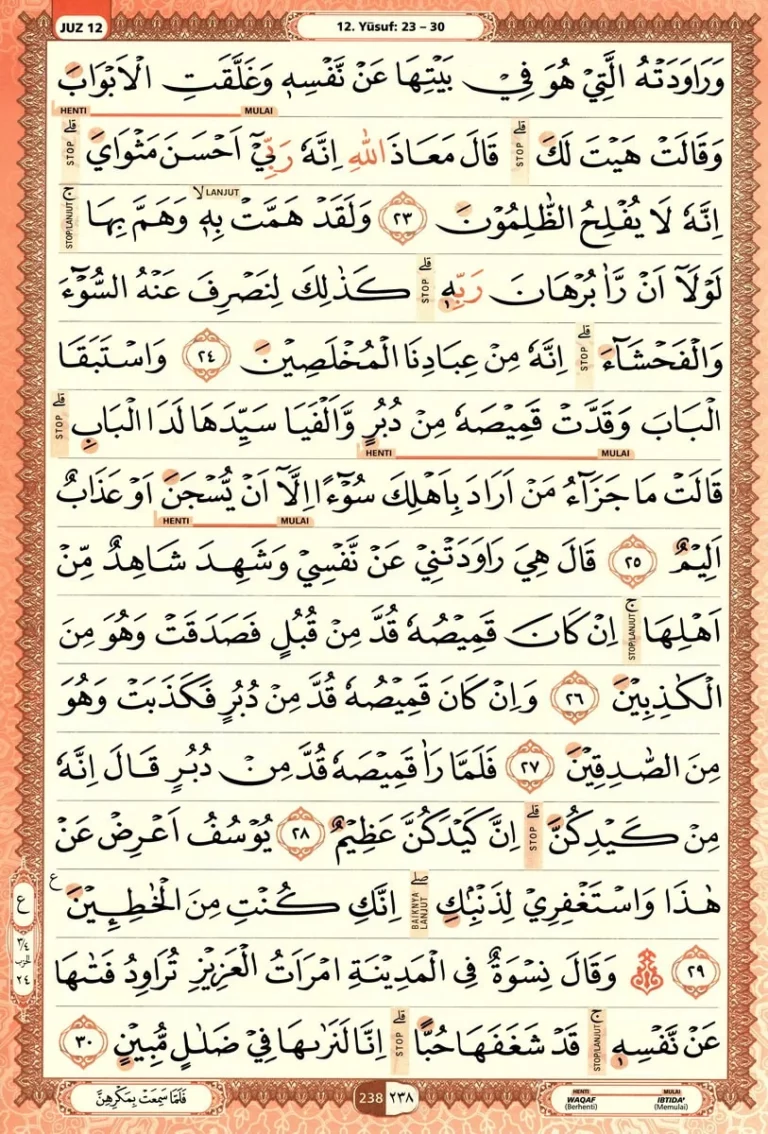 JUZ 12
12. Yūsuf: 23 – 30
وَرَاوَدَتْهُ الَّتِيْ هُوَ فِيْ بَيْتِهَا عَنْ نَّفْسِهٖ وَغَلَّقَتِ الْاَبْوَابَ
HENTI MULAI
وَقَالَتْ هَيْتَ لَكَ ۗ قَالَ مَعَاذَ اللّٰهِ اِنَّهٗ رَبِّيْٓ اَحْسَنَ مَثْوَايَ ۗ
STOP STOP
اِنَّهٗ لَا يُفْلِحُ الظّٰلِمُوْنَ ٢٣ وَلَقَدْ هَمَّتْ بِهٖ ۙ وَهَمَّ بِهَا ۚ
LANJUT STOP/LANJUT
لَوْلَآ اَنْ رَّاٰ بُرْهَانَ رَبِّهٖ ۗ كَذٰلِكَ لِنَصْرِفَ عَنْهُ السُّوْۤءَ
STOP
وَالْفَحْشَاۤءَ ۗ اِنَّهٗ مِنْ عِبَادِنَا الْمُخْلَصِيْنَ ٢٤ وَاسْتَبَقَا
STOP
الْبَابَ وَقَدَّتْ قَمِيْصَهٗ مِنْ دُبُرٍ وَّاَلْفَيَا سَيِّدَهَا لَدَا الْبَابِ ۗ
STOP
HENTI MULAI
قَالَتْ مَا جَزَاۤءُ مَنْ اَرَادَ بِاَهْلِكَ سُوْۤءًا اِلَّآ اَنْ يُّسْجَنَ اَوْ عَذَابٌ
HENTI MULAI
اَلِيْمٌ ٢٥ قَالَ هِيَ رَاوَدَتْنِيْ عَنْ نَّفْسِيْ وَشَهِدَ شَاهِدٌ مِّنْ
اَهْلِهَا ۚ اِنْ كَانَ قَمِيْصُهٗ قُدَّ مِنْ قُبُلٍ فَصَدَقَتْ وَهُوَ مِنَ
STOP/LANJUT
الْكٰذِبِيْنَ ٢٦ وَاِنْ كَانَ قَمِيْصُهٗ قُدَّ مِنْ دُبُرٍ فَكَذَبَتْ وَهُوَ
مِنَ الصّٰدِقِيْنَ ٢٧ فَلَمَّا رَاٰ قَمِيْصَهٗ قُدَّ مِنْ دُبُرٍ قَالَ اِنَّهٗ
مِنْ كَيْدِكُنَّ ۗ اِنَّ كَيْدَكُنَّ عَظِيْمٌ ٢٨ يُوْسُفُ اَعْرِضْ عَنْ
STOP
هٰذَا وَاسْتَغْفِرِيْ لِذَنْۢبِكِ ۖ اِنَّكِ كُنْتِ مِنَ الْخٰطِـِٕيْنَ ع
BAIKNYA LANJUT
٢٩ وَقَالَ نِسْوَةٌ فِى الْمَدِيْنَةِ امْرَاَتُ الْعَزِيْزِ تُرَاوِدُ فَتٰىهَا
عَنْ نَّفْسِهٖ ۚ قَدْ شَغَفَهَا حُبًّا ۗ اِنَّا لَنَرٰىهَا فِيْ ضَلٰلٍ مُّبِيْنٍ ٣٠
STOP/LANJUT STOP
ع
٣/٤
الحزب
٢٤
فَلَمَّا سَمِعَتْ بِمَكْرِهِنَّ
238 ٢٣٨
HENTI MULAI
WAQAF IBTIDA'
(Berhenti) (Memulai)